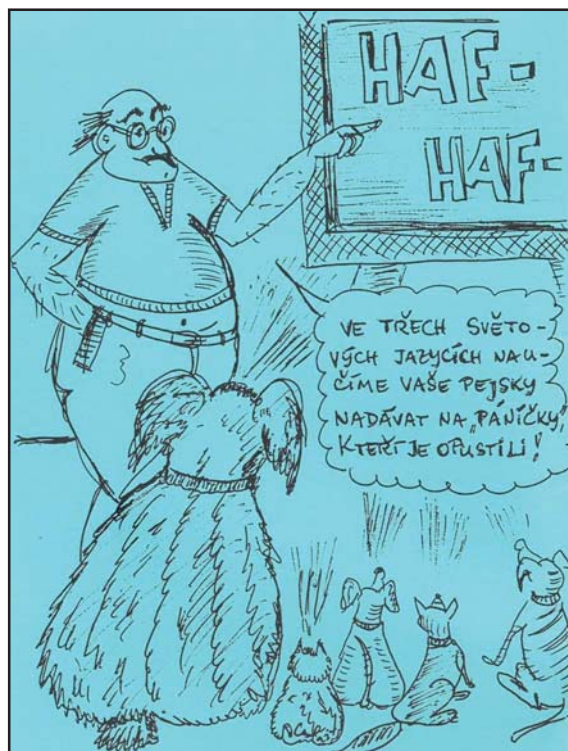 HAF-
HAF-
VE TŘECH SVĚTO-
VÝCH JAZYCÍCH NAU-
ČÍME VAŠE PEJSKY
NADÁVAT NA „PÁNÍČKY",
KTEŘÍ JE OPUSTILI!